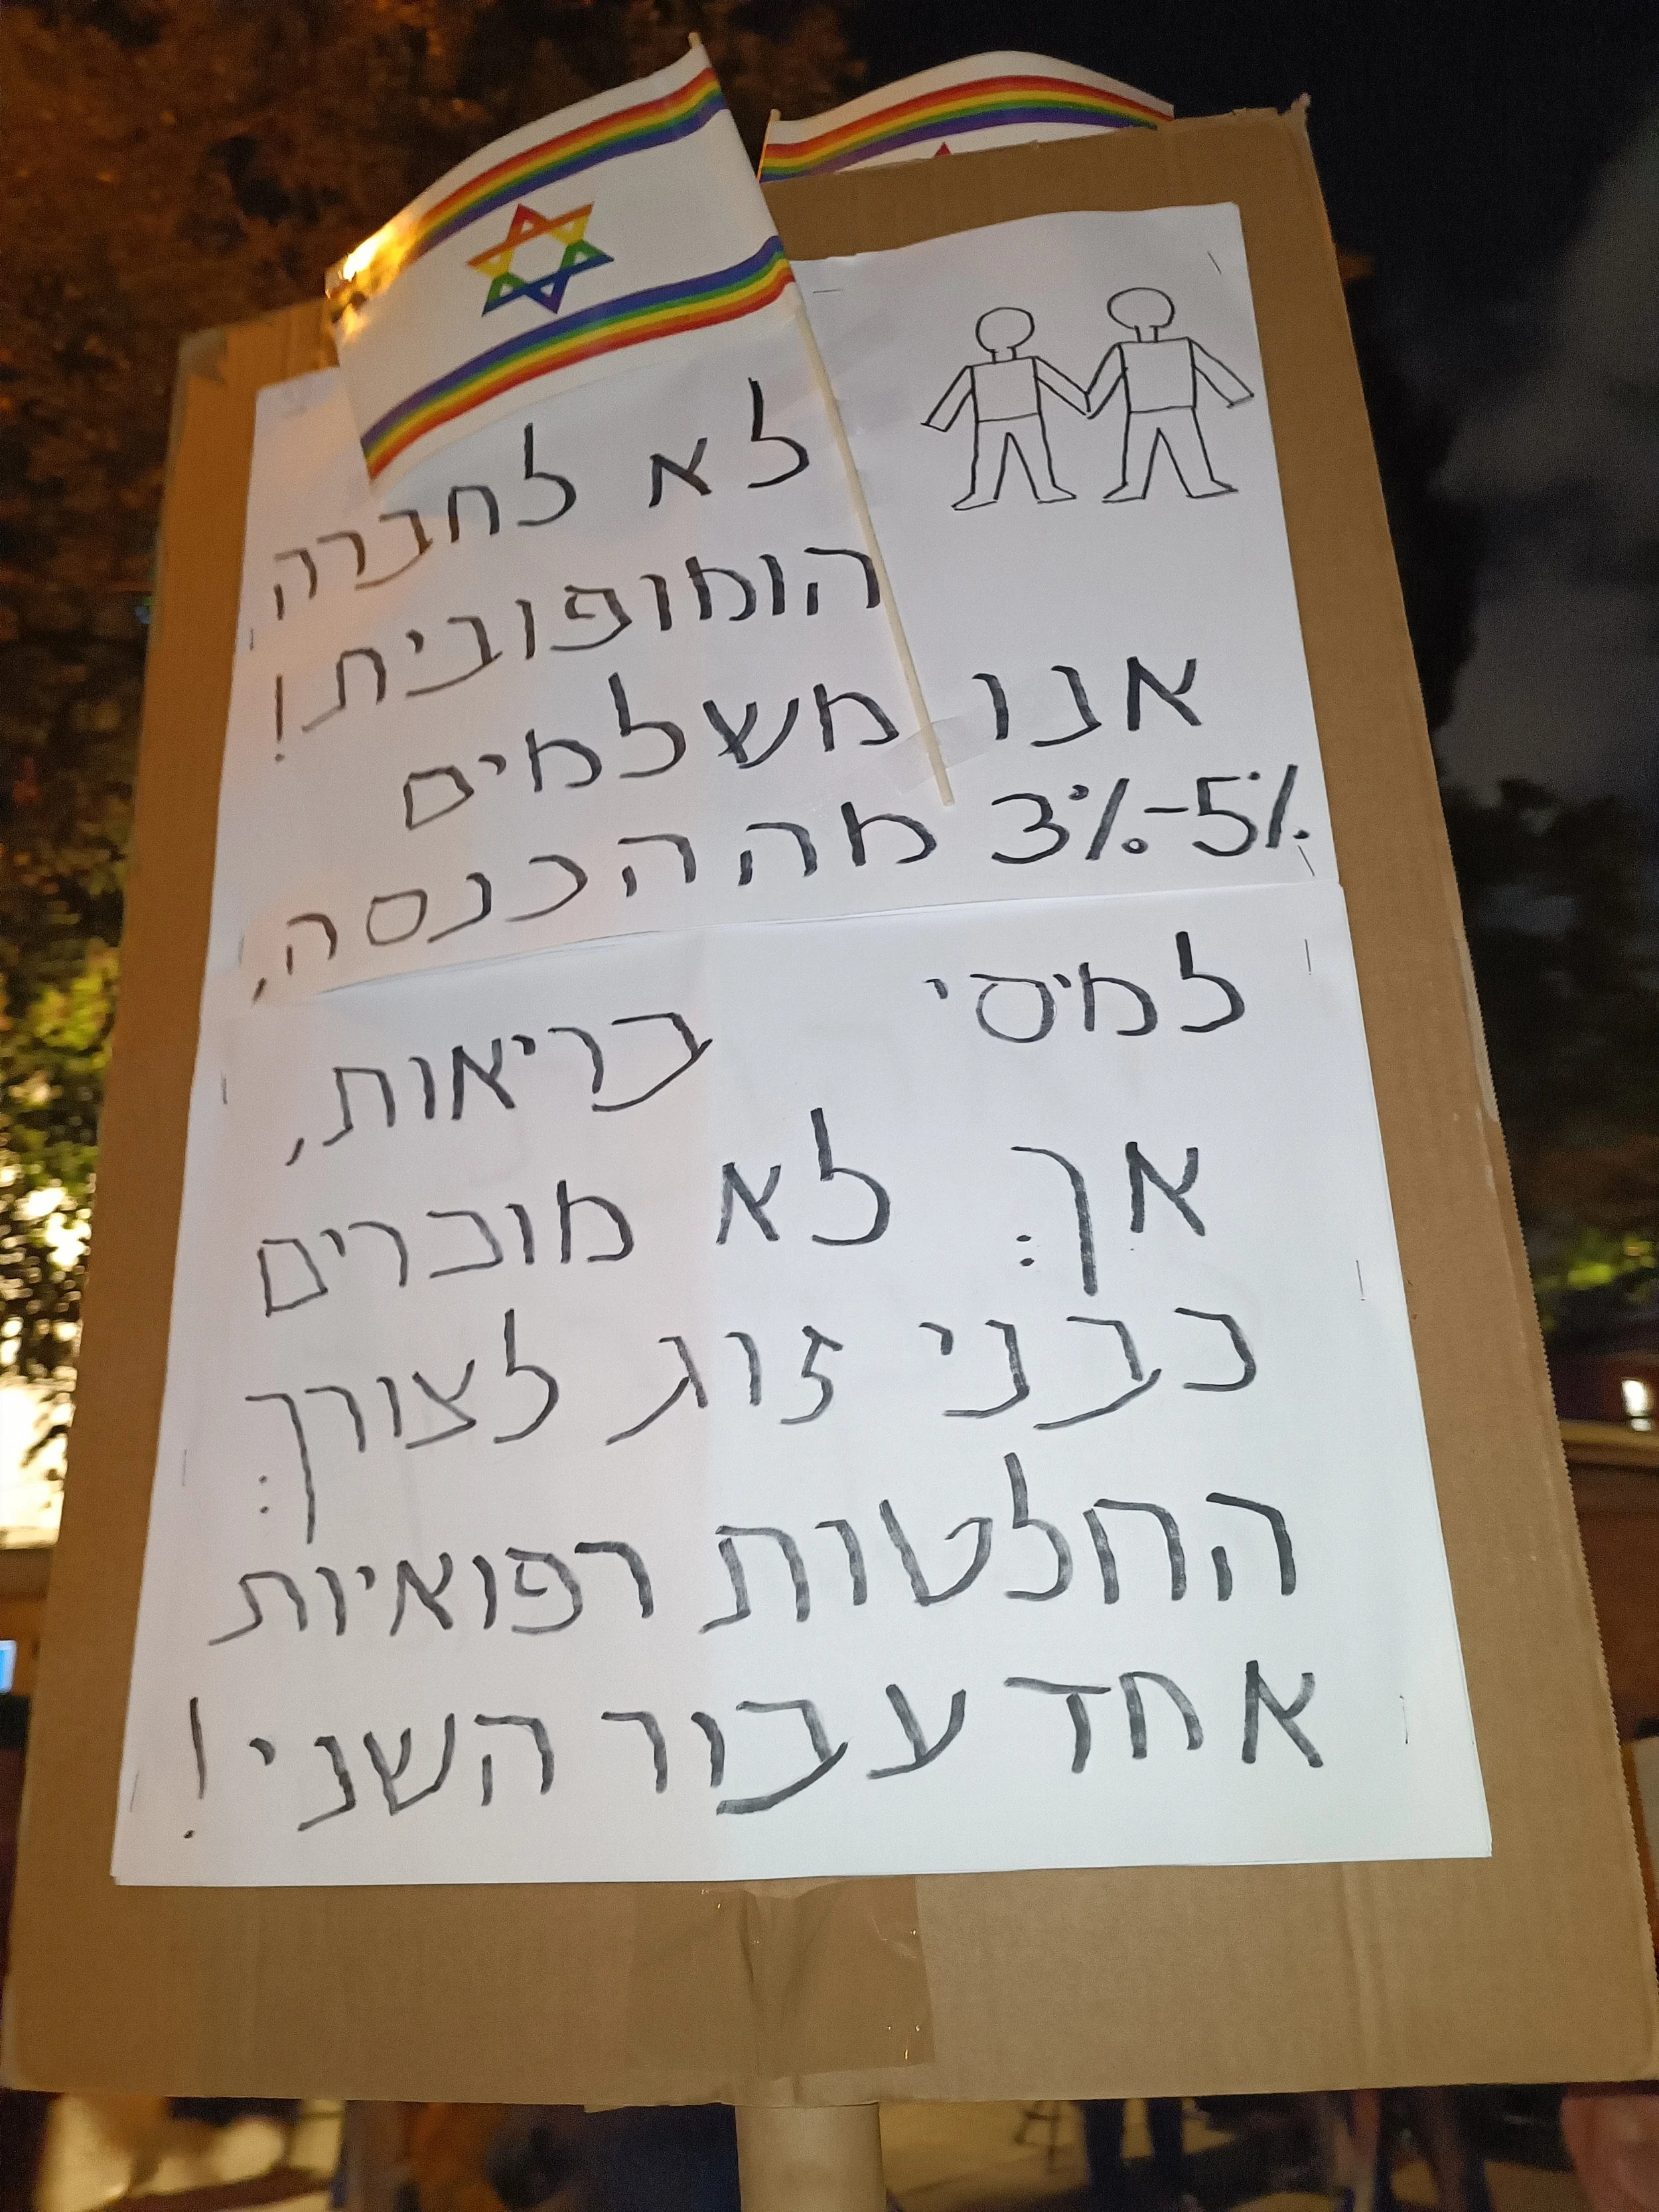 לא לחברה
הומופובית!
אנו משלמים
3%-5% מההכנסה,
למיסי בריאות,
אך לא מוכרים
כבני זוג לצורך
החלטות רפואיות
אחד עבור השני!